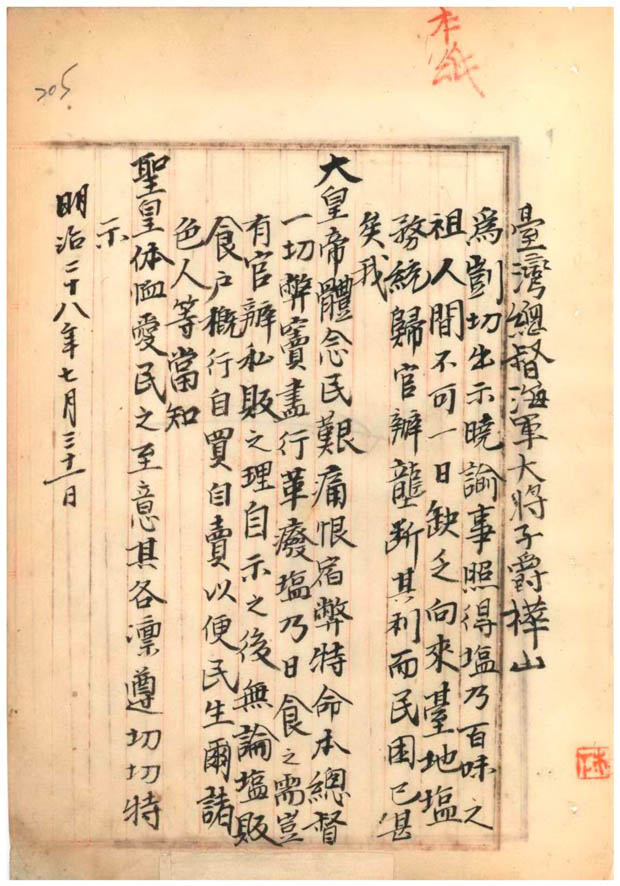 本紙
205
臺灣總督海軍大將子爵樺山
為剴切出示曉諭事照得塩乃百味之
祖人間不可一日缺乏向來臺地塩
務統歸官辦壟斷其利而民困已甚
矣我
大皇帝體念民艱痛恨宿弊特命本總督
一切弊竇盡行革廢塩乃日食之需豈
有官辦私販之理自示之後無論塩販
食户概行自買自賣以便民生爾諸
色人等當知
聖皇体恤愛民之至意其各凛遵切切特
示
明治二十八年七月三十一日